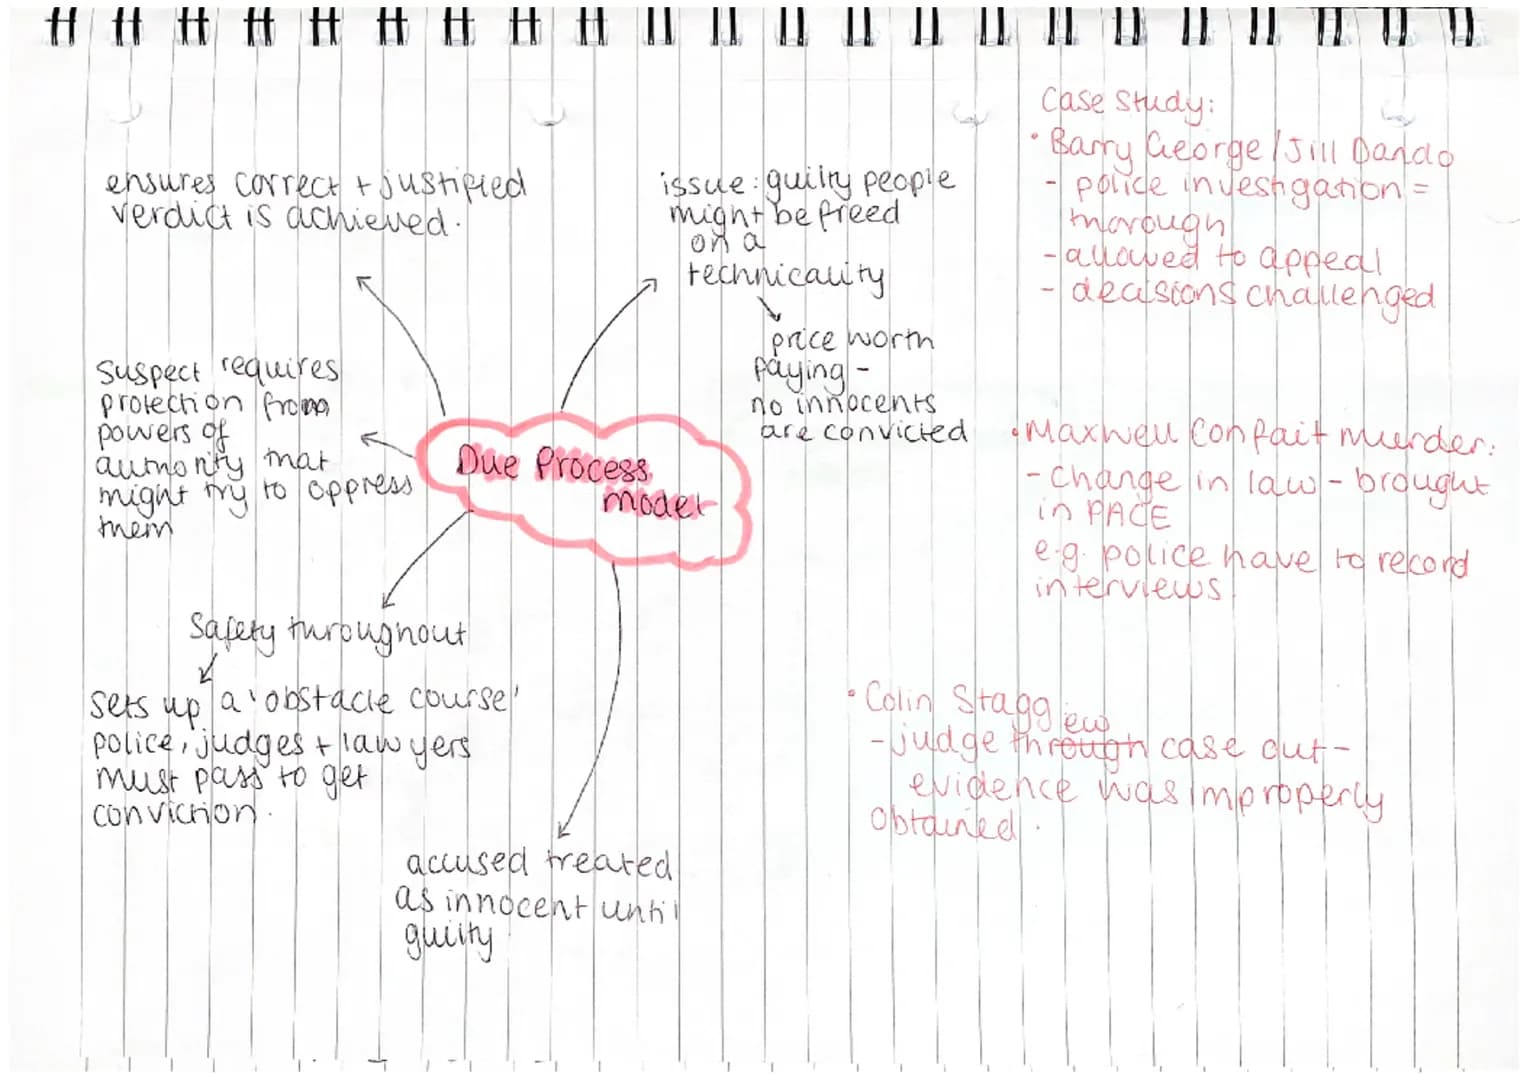 Due Process
model
ensures correct + justified
verdict is achieved.
issue: guilty people
might be freed
on a
technicality
price worth
paying -
no innocents
are convicted
Suspect requires
protection from
powers of
authority that
might try to oppress
them
Safety throughout
Sets up a 'obstacle course'
police, judges + lawyers
must pass to get
conviction.
accused treated
as innocent until
guilty
Case Study:
• Barry George / Jill Dando
- police investigation =
thorough
- allowed to appeal
- decisions challenged
• Maxwell Confait murder:
- Change in law - brought
in PACE
e.g. police have to record
interviews
• Colin Stagg
ew
- judge through case out -
evidence was improperly
obtained.